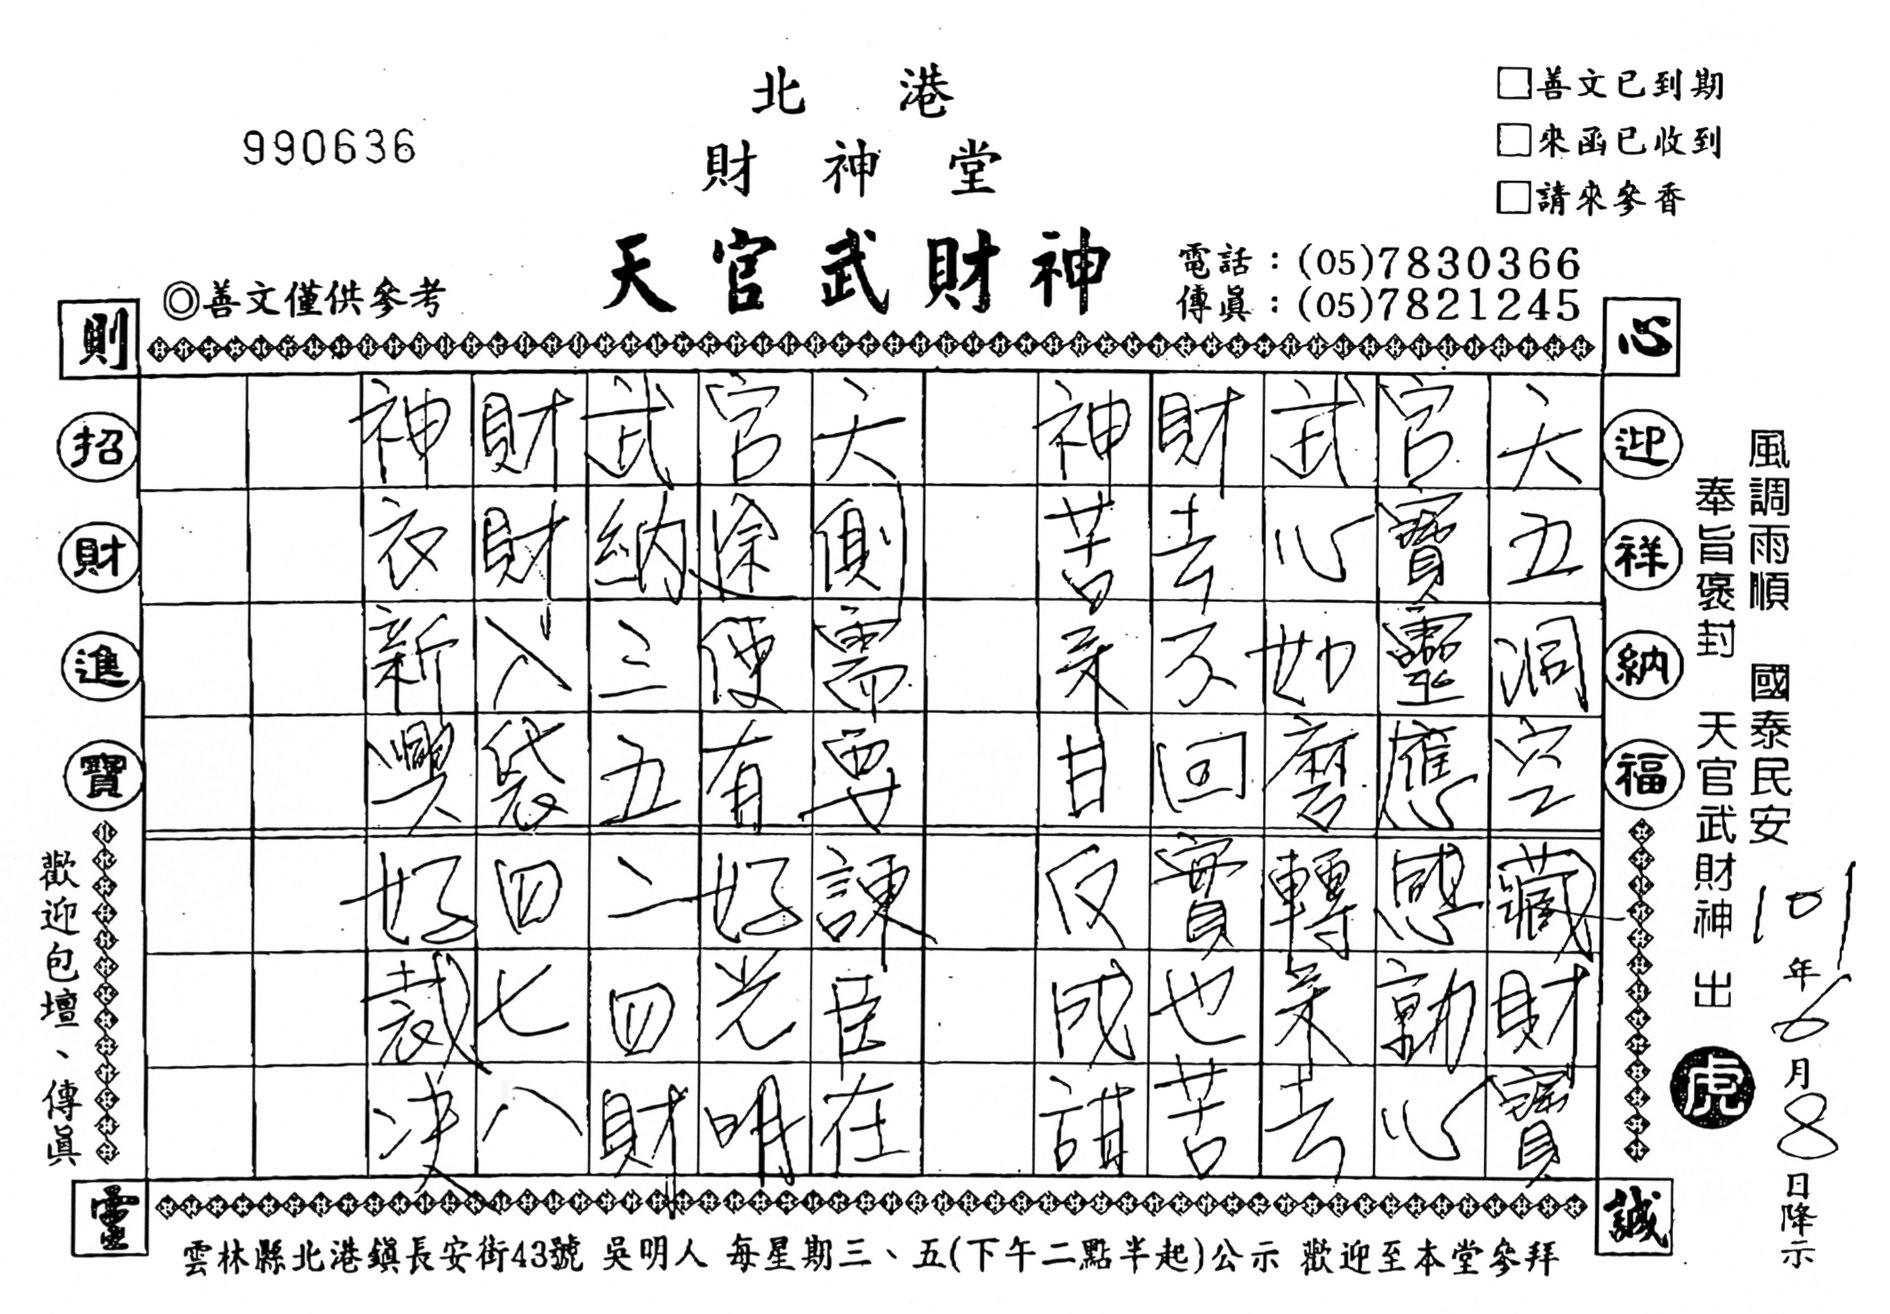 北港
財神堂
天官武財神
990636
□善文已到期
□來函已收到
□請來參香
電話：(05)7830366
傳眞：(05)7821245
◎善文僅供參考
心
誠
則
靈
迎祥納福
招財進寶
風調雨順 國泰民安
奉旨褒封 天官武財神 出
虎
101年6月8日降示
天五洞空藏財寶
官寶靈應感動心
武心如磨轉來去
財去不回實也苦
神苦來甘反成
天側需要諫臣在
官途使有好光明
武納三五二四財
財財入袋四七八
神衣新興好裁決
歡迎包壇、傳眞
雲林縣北港鎮長安街43號 吳明人 每星期三、五(下午二點半起)公示 歡迎至本堂參拜